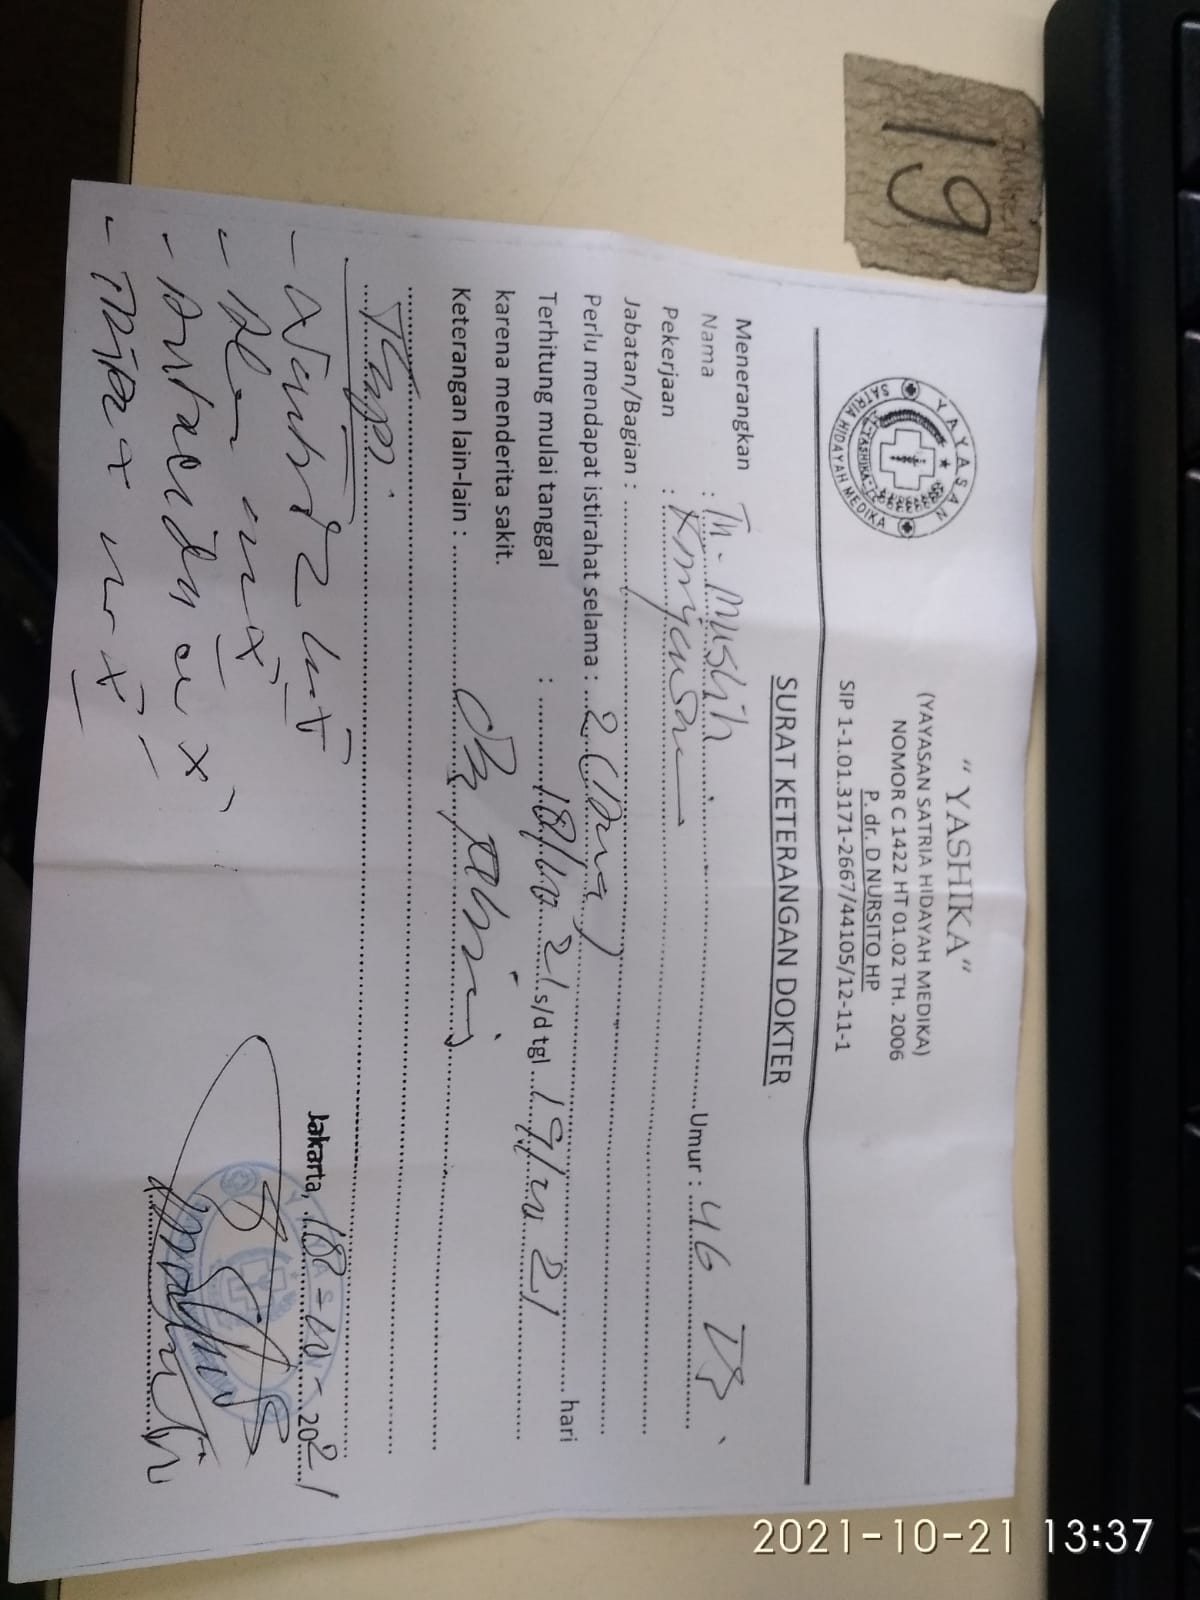 19
YAYASAN
SATRIA HIDAYAH MEDIKA
YASHIKA
"YASHIKA"
(YAYASAN SATRIA HIDAYAH MEDIKA)
NOMOR C 1422 HT 01.02 TH. 2006
P. dr. D NURSITO HP
SIP 1-1.01.3171-2667/44105/12-11-1
SURAT KETERANGAN DOKTER
Menerangkan
Nama : Tn. Muslih Umur : 46
Pekerjaan : Karyawan
Jabatan/Bagian :
Perlu mendapat istirahat selama : 2 (Dua) hari
Terhitung mulai tanggal : 18/10 21 s/d tgl 19/10 21
karena menderita sakit.
Keterangan lain-lain :
Jakarta, 18 - 10 - 2021
2021-10-21 13:37